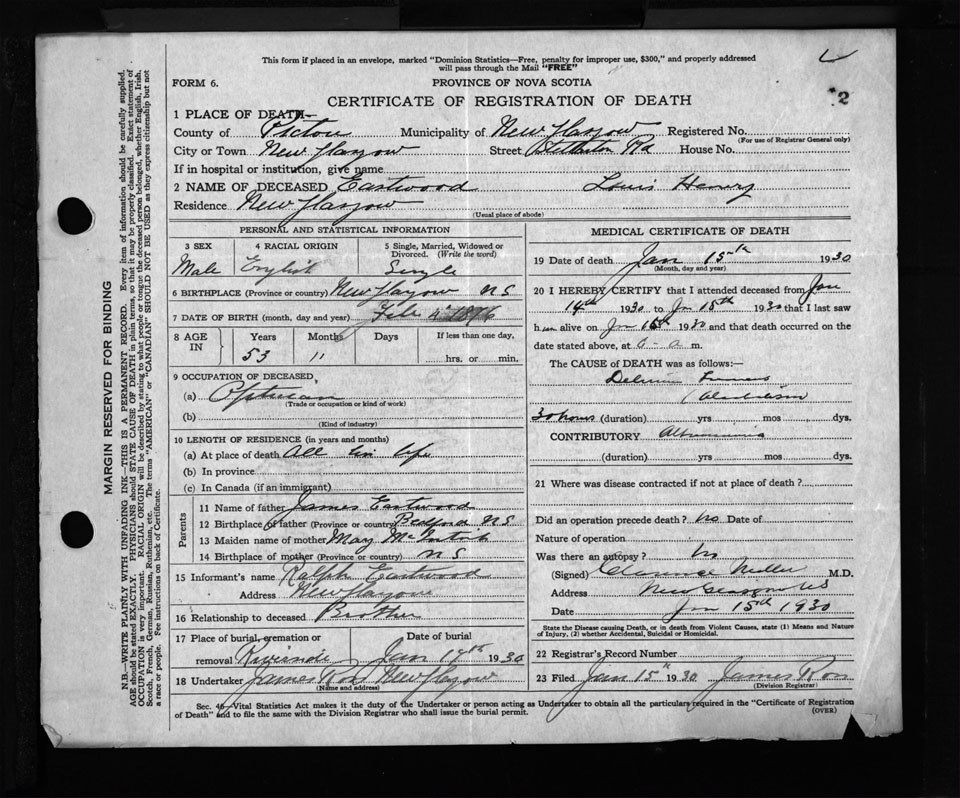 This form if placed in an envelope, marked "Dominion Statistics—Free, penalty for improper use, $300," and properly addressed
will pass through the Mail "FREE"
FORM 6. PROVINCE OF NOVA SCOTIA
2
CERTIFICATE OF REGISTRATION OF DEATH
1 PLACE OF DEATH—
County of Pictou Municipality of New Glasgow Registered No.
(For use of Registrar General only)
City or Town New Glasgow Street Stellarton Rd House No.
If in hospital or institution, give name
2 NAME OF DECEASED Eastwood Louis Henry
Residence New Glasgow
(Usual place of abode)
MARGIN RESERVED FOR BINDING
N.B.—WRITE PLAINLY WITH UNFADING INK—THIS IS A PERMANENT RECORD. Every item of information should be carefully supplied.
AGE should be stated EXACTLY. PHYSICIANS should STATE CAUSE OF DEATH in plain terms, so that it may be properly classified. Exact statement of
OCCUPATION is very important. RACIAL ORIGIN will be described by stating to what people or tongue the deceased person belonged, whether English, Irish,
Scotch, French, German, Russian, Ruthenian, etc. The terms "AMERICAN" or "CANADIAN" SHOULD NOT BE USED as they express citizenship but not
a race or people. Fee instructions on back of Certificate.
PERSONAL AND STATISTICAL INFORMATION
3 SEX 4 RACIAL ORIGIN 5 Single, Married, Widowed or
Divorced. (Write the word)
Male English Single
6 BIRTHPLACE (Province or country) New Glasgow NS
7 DATE OF BIRTH (month, day and year) Feb 4 1876
8 AGE IN Years Months Days If less than one day,
53 11 hrs. or min.
9 OCCUPATION OF DECEASED
(a)
(Trade or occupation or kind of work)
(b)
(Kind of industry)
10 LENGTH OF RESIDENCE (in years and months)
(a) At place of death All his life
(b) In province
(c) In Canada (if an immigrant)
Parents
11 Name of father James Eastwood
12 Birthplace of father (Province or country) Bedford NS
13 Maiden name of mother May McIntosh
14 Birthplace of mother (Province or country) NS
15 Informant's name Ralph Eastwood
Address New Glasgow
16 Relationship to deceased Brother
17 Place of burial, cremation or Date of burial
removal Riverside Jan 17th 1930
18 Undertaker James Ross New Glasgow
(Name and address)
MEDICAL CERTIFICATE OF DEATH
19 Date of death Jan 15th 1930
(Month, day and year)
20 I HEREBY CERTIFY that I attended deceased from Jan
14th 1930 to Jan 15th 1930 that I last saw
him alive on Jan 15th 1930 and that death occurred on
date stated above, at a.m.
The CAUSE of DEATH was as follows:—
Delirium Tremens
(Alcoholism)
30 hours (duration) yrs mos dys.
CONTRIBUTORY Albuminuria
(duration) yrs mos dys.
21 Where was disease contracted if not at place of death?
Did an operation precede death? No Date of
Nature of operation
Was there an autopsy? No
(Signed) Clarence Miller M.D.
Address New Glasgow NS
Date Jan 15th 1930
State the Disease causing Death, or in death from Violent Causes, state (1) Means and Nature
of Injury, (2) whether Accidental, Suicidal or Homicidal.
22 Registrar's Record Number
23 Filed Jan 15th 1930 James Ross
(Division Registrar)
Sec. 46—Vital Statistics Act makes it the duty of the Undertaker or person acting as Undertaker to obtain all the particulars required in the "Certificate of Registration
of Death" and to file the same with the Division Registrar who shall issue the burial permit.
(OVER)